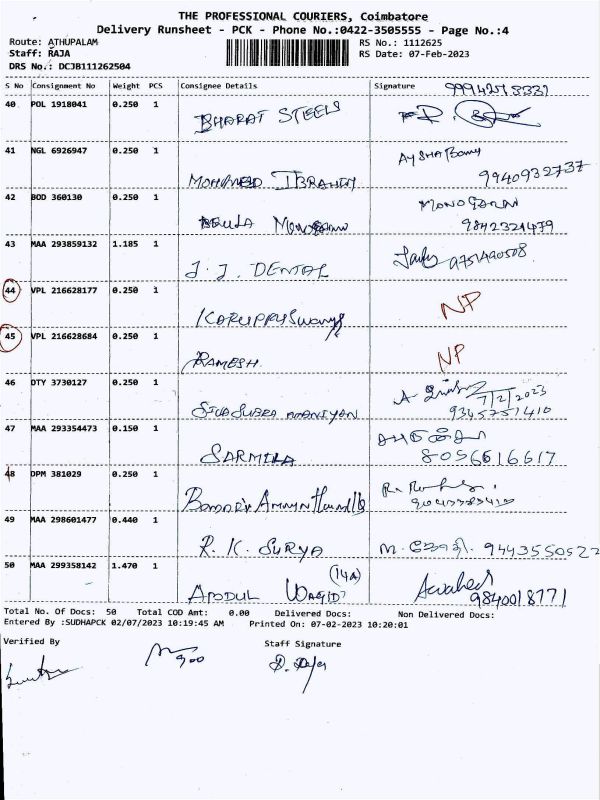 THE PROFESSIONAL COURIERS, Coimbatore
Delivery Runsheet - PCK - Phone No.:0422-3505555 - Page No.:4
Route: ATHUPALAM RS No.: 1112625
Staff: RAJA RS Date: 07-Feb-2023
DRS No.: DCJB111262504
S No Consignment No Weight PCS Consignee Details Signature
40 POL 1918041 0.250 1 BHARAT STEELS
41 NGL 6926947 0.250 1 MOHAMED IBRAHIM 9940932737
42 BOD 360130 0.250 1 9842321479
43 MAA 293859132 1.185 1 J. J. DENTAL 9751490508
44 VPL 216628177 0.250 1 KARUPPUSwamy NP
45 VPL 216628684 0.250 1 RAMESH NP
46 DTY 3730127 0.250 1 SIVASUBRAMANIYAN 7/2/2023
9345751410
47 MAA 293354473 0.150 1 SARMILA 8056616617
48 DPM 381029 0.250 1
49 MAA 298601477 0.440 1 R. K. SURYA 9443550522
50 MAA 299358142 1.470 1 ABDUL WAGID (14A) 9840018771
Total No. Of Docs: 50 Total COD Amt: 0.00 Delivered Docs: Non Delivered Docs:
Entered By :SUDHAPCK 02/07/2023 10:19:45 AM Printed On: 07-02-2023 10:20:01
Verified By Staff Signature